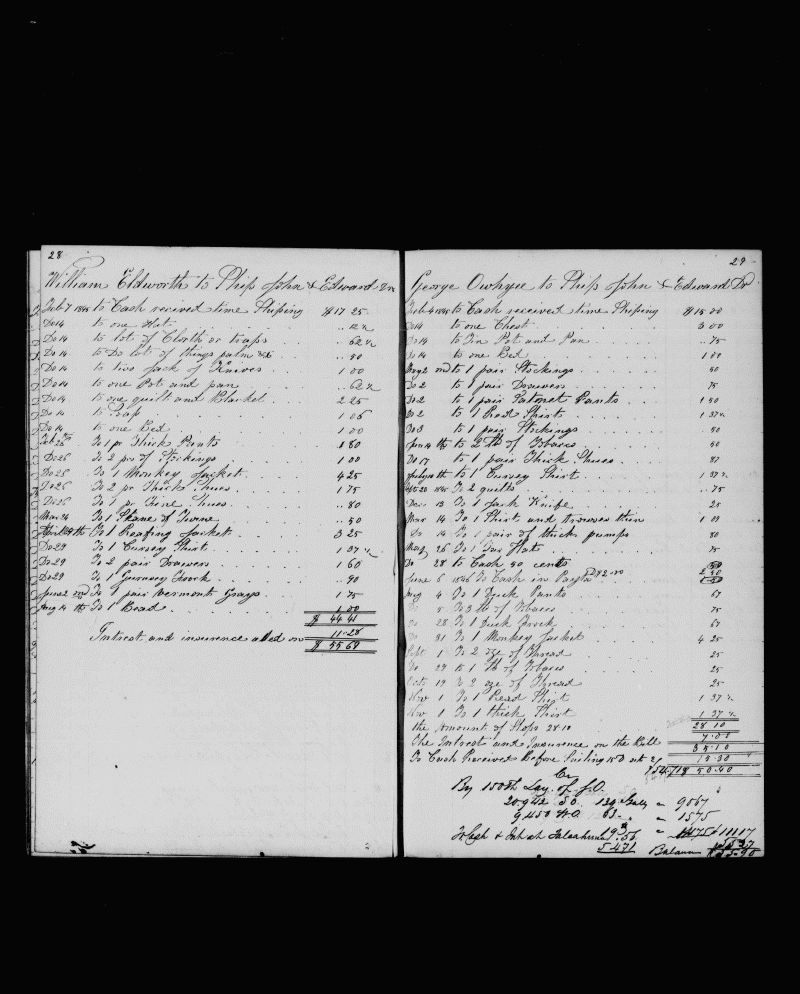 28
William Eldworth to Ship John & Edward Dr
Feb 7 1845 to Cash received time Shiping $17 25
Do 14 to one Hat .. 12½
Do 14 to lot of Cloth or traps .. 62½
Do 14 to Do lot of things palm &c .. 50
Do 14 to two Jack of Knives 1 00
Do 14 to one Pot and pan .. 62½
Do 14 to one quilt and Blanket 2 25
Do 14 to Soap 1 06
Do 14 to one Bed 1 00
Feb 26 To 1 pr Thick Pants 1 80
Do 26 To 2 prs of Stockings 1 00
Do 26 To 1 Monkey Jacket 4 25
Do 26 To 2 pr Thick Shues 1 75
Do 26 To 1 pr Fine Shues .. 80
Mar 24 To 1 Skane of Twine .. 50
April 24th To 1 Reafing Jacket 3 25
Do 29 To 1 Cursey Shirt 1 37½
Do 29 To 2 pair Drawers 1 60
Do 29 To 1 Gurnsey Frock .90
June 2nd To 1 pair Vermont Grays 1 75
Aug 14th To 1 Bead 1 00
$ 44 41
Intrest and insurence aded on 11-28
$ 55 69
29
George Owhyee to Ship John & Edward Dr
Feb 4 1845 to Cash received time Shiping $15 00
Do 14 to one Chest 3 00
Do 14 to Tin Pot and Pan .. 75
Do 14 to one Bed 1 00
May 2nd to 1 pair Stockings 50
Do 2 to 1 pair Drawers 75
Do 2 to 1 pair Satonet Pants 1 50
Do 2 to 1 Read Shirt 1 37½
Do 3 to 1 pair Stockings 50
June 14th to 2 lb of Tobaco 50
Do 17 to 1 pair Thick Shues 87
July th to 1 Cursey Shirt 1 37½
20 1845 To 2 quilts .. 75
Dec 13 To 1 Jack Knife 25
Mar 14 To 1 Shirt and trowsers thin 1 09
Do 14 To 1 pair of thick pumps 80
May 26 To 1 Tar Hats 75
Do 28 to Cash 50 cents 50
June 6 1846 To Cash in Payta $2-00 2 50
Aug 4 To 1 Duck Pants 67
Do 5 To 3 lb of Tobaco 75
Do 28 To 1 Duck frock 67
Do 31 To 1 Monkey Jacket 4 25
Sept 1 To 2 oze of Thread 25
Do 27 to 1 lb of Tobaco 25
Octo 19 To 2 oze of Thread 25
Nov 1 To 1 Read Shirt 1 37½
Nov 1 To 1 thick Shirt 1 37½
the Amount of Slops 28 10 28 10
The Intrest and Insurence on the Bill 7.00
35.10
To Cash Received Before Sailing 15 D 15 30
50.40
Cr
By 150th Lay of
20942 S.O. 139 Galls " 9067
9450 W.O. 63 " " 1575
To Cash &
5471 Balann 55.90